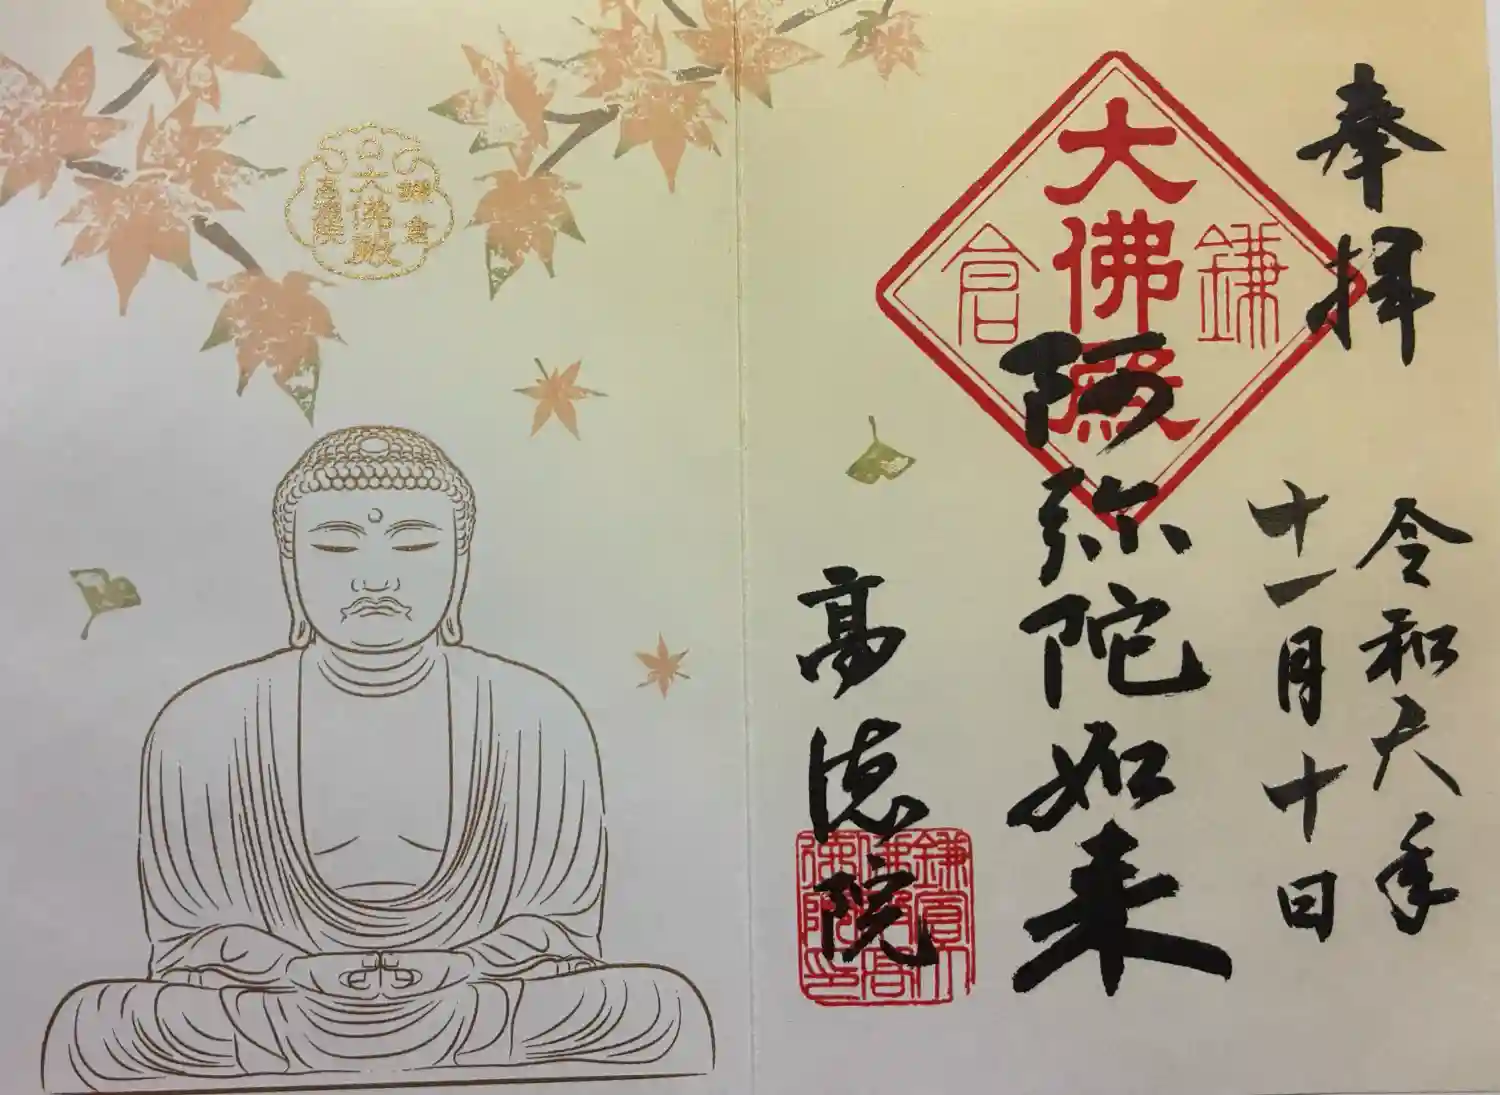 奉拝
令和六年
十一月十日
鎌倉
大佛殿
阿弥陀如来
高徳院
鎌倉大
佛殿高
徳院印
鎌倉
大佛殿